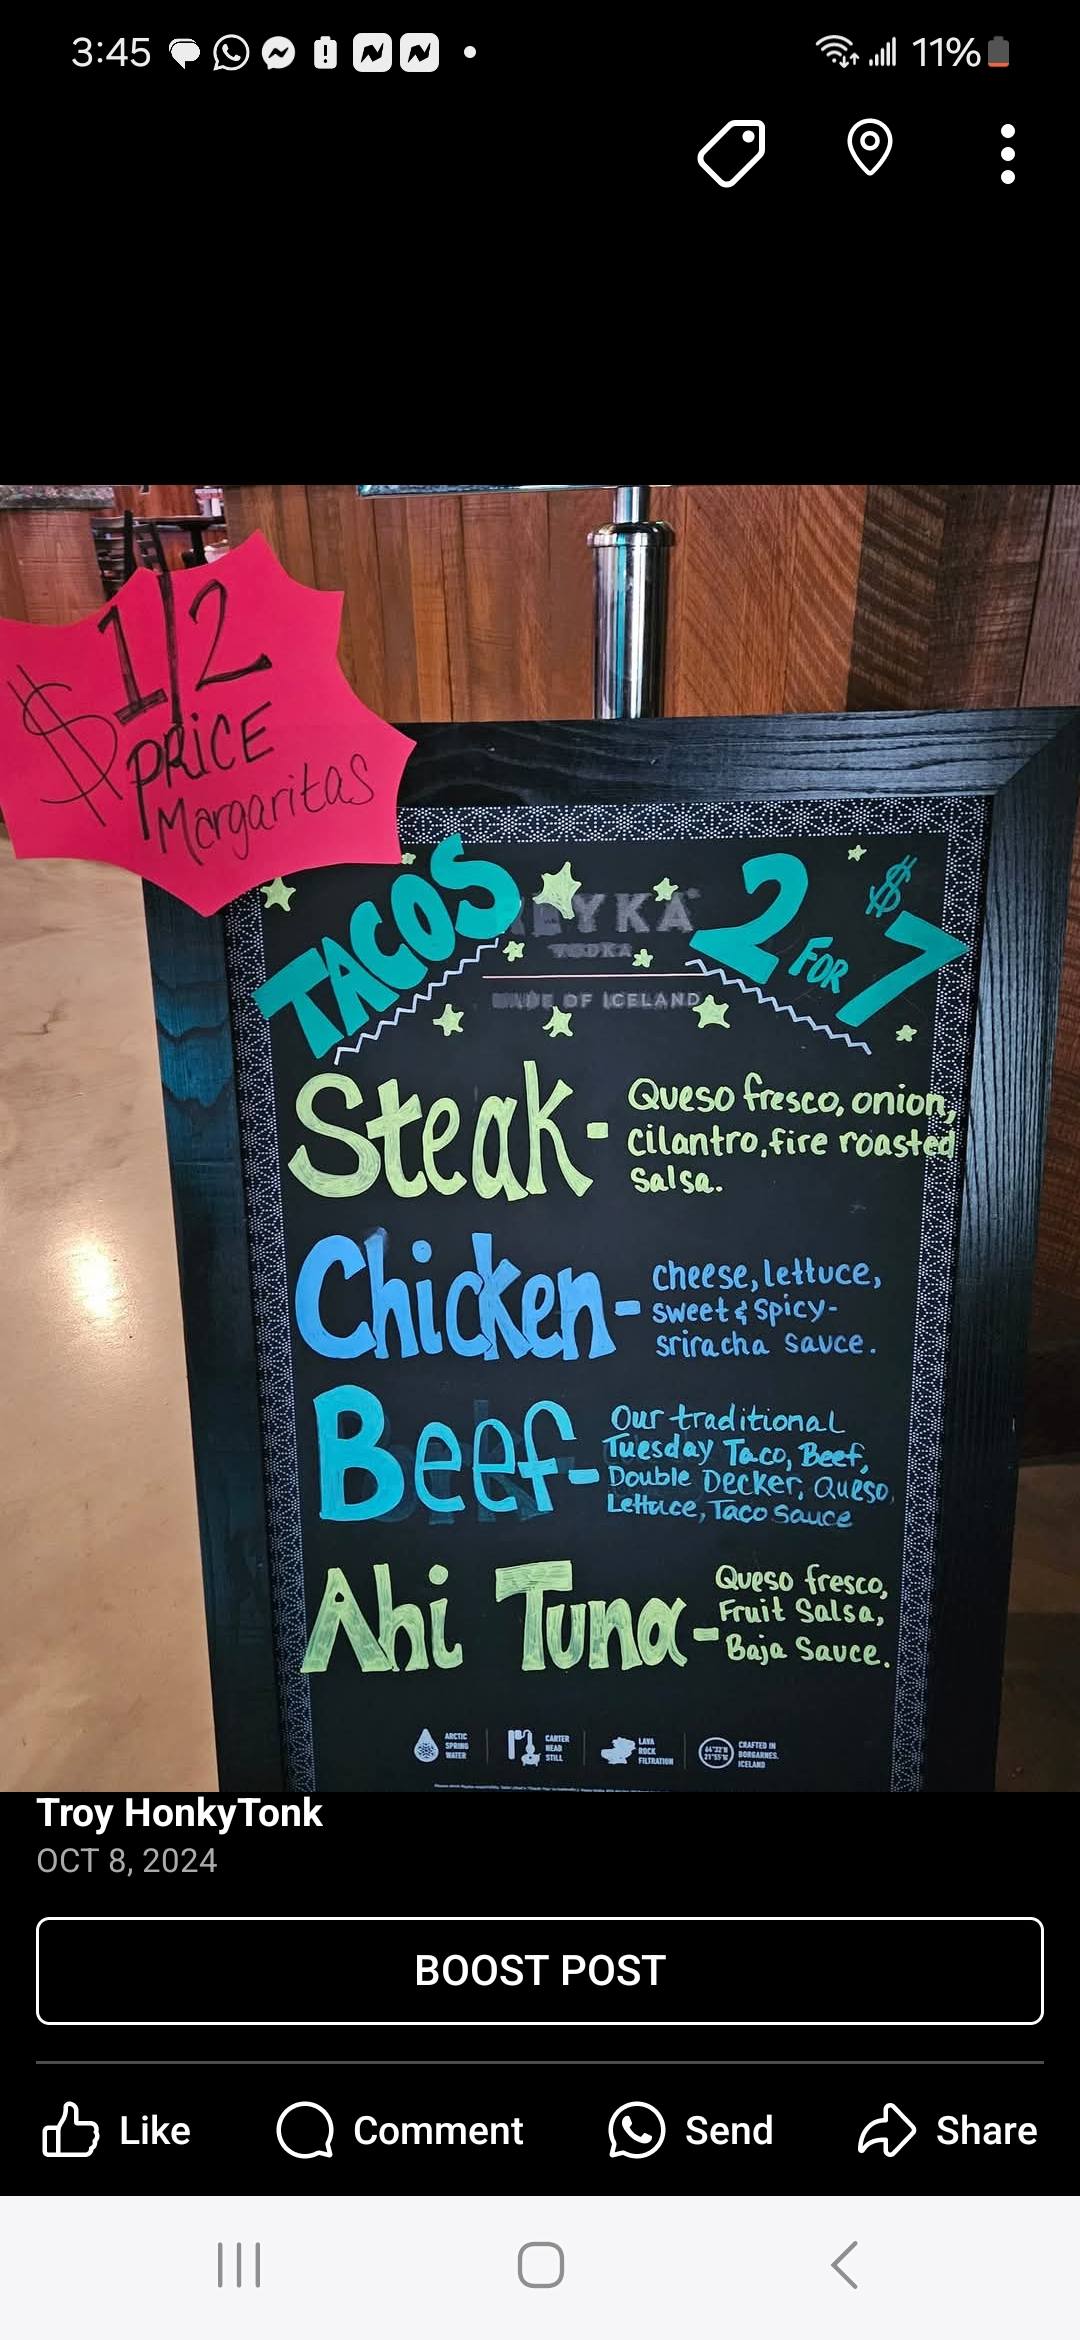 3:45
11%
1/2
$ PRiCE
Margaritas
TACOS
2 FOR $7
REYKA
VODKA
MADE OF ICELAND
Steak-
Queso fresco, onion,
cilantro, fire roasted
Salsa.
Chicken-
cheese, lettuce,
sweet & spicy-
sriracha sauce.
Beef-
Our traditional
Tuesday Taco, Beef,
Double Decker, Queso,
Lettuce, Taco Sauce
Ahi Tuna-
Queso fresco,
Fruit Salsa,
Baja Sauce.
ARCTIC
SPRING
WATER
CARTER
HEAD
STILL
LAVA
ROCK
FILTRATION
CRAFTED IN
BORGARNES,
ICELAND
Troy HonkyTonk
OCT 8, 2024
BOOST POST
Like
Comment
Send
Share